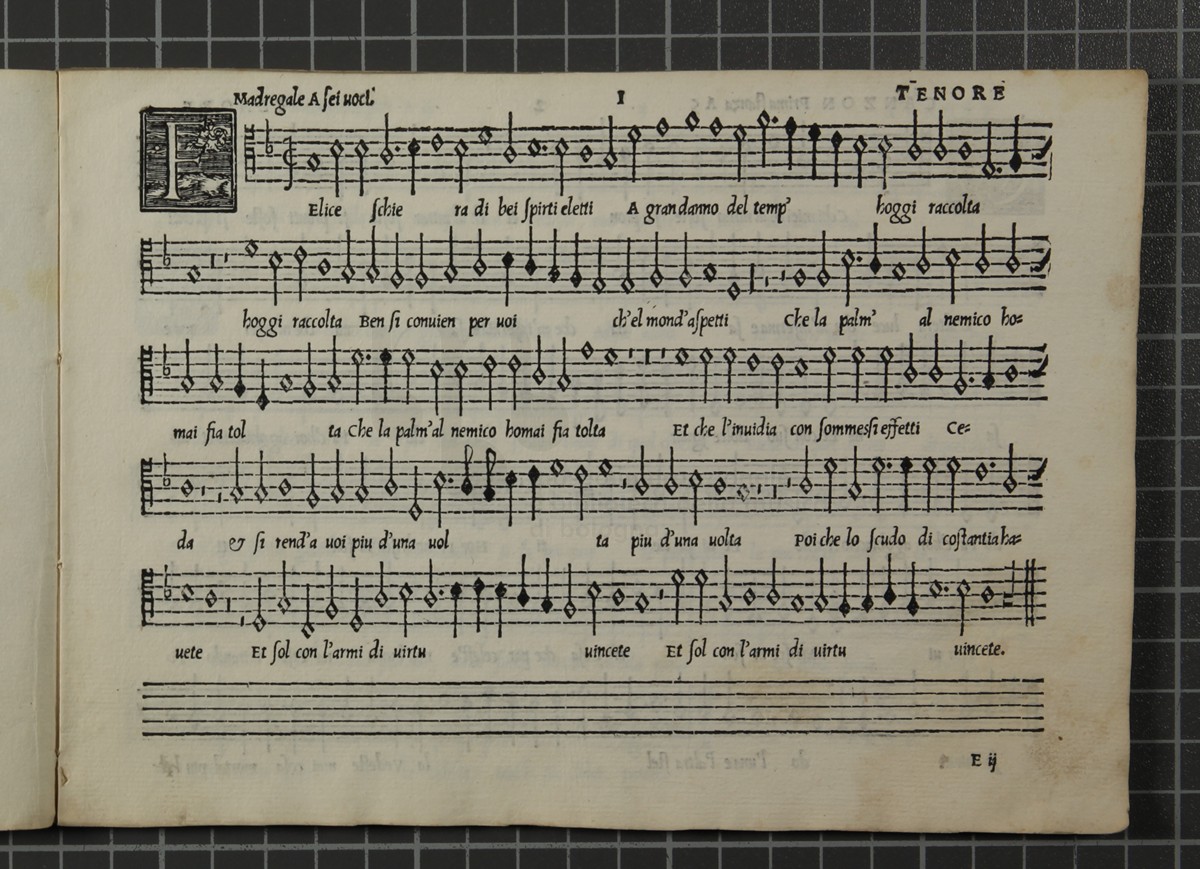 Madregale A sei uoci. 1 TENORE
FElice schie ra di bei spirti eletti A gran danno del temp' hoggi raccolta
hoggi raccolta Ben si conuien per uoi ch'el mond'aspetti Che la palm' al nemico ho=
mai fia tol ta Che la palm'al nemico homai fia tolta Et che l'inuidia con sommessi effetti Ce=
da & si rend'a uoi piu d'una uol ta piu d'una uolta Poi che lo scudo di costantia ha=
uete Et sol con l'armi di uirtu uincete Et sol con l'armi di uirtu uincete.
E ij